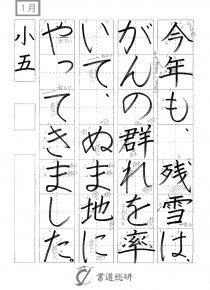 1月
今年も、残雪は、
がんの群れを率
いて、ぬま地に
やってきました。
小五
書道総研